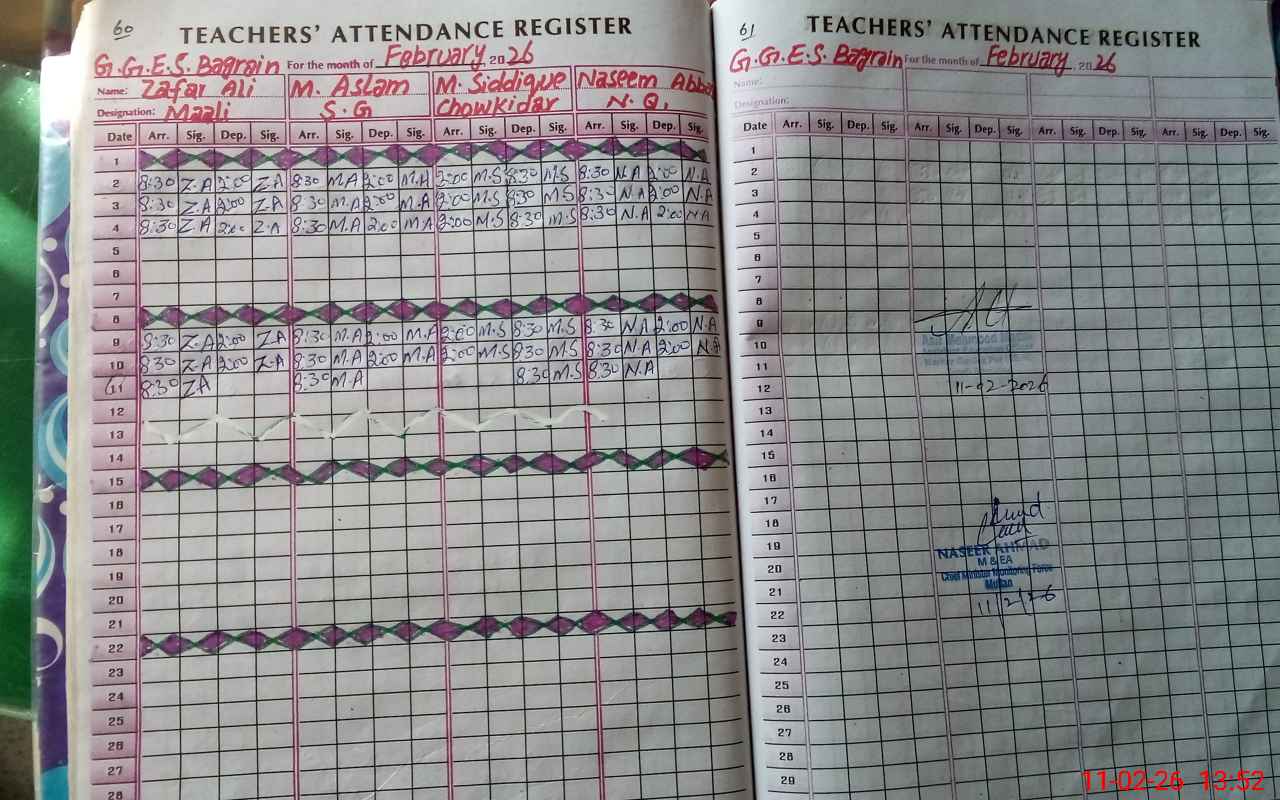 60
TEACHERS' ATTENDANCE REGISTER
G.G.E.S. Bagrain For the month of February 2026
Name: Zafar Ali M. Aslam M. Siddique Naseem Abbas
Designation: Maali S.G Chowkidar N.Q.
Date Arr. Sig. Dep. Sig. Arr. Sig. Dep. Sig. Arr. Sig. Dep. Sig. Arr. Sig. Dep. Sig.
1
2 8:30 Z.A 2:00 Z.A 8:30 M.A 2:00 M.A 2:00 M.S 8:30 M.S 8:30 N.A 2:00 N.A
3 8:30 Z.A 2:00 Z.A 8:30 M.A 2:00 M.A 2:00 M.S 8:30 M.S 8:30 N.A 2:00 N.A
4 8:30 Z.A 2:00 Z.A 8:30 M.A 2:00 M.A 2:00 M.S 8:30 M.S 8:30 N.A 2:00 N.A
5
6
7
8
9 8:30 Z.A 2:00 Z.A 8:30 M.A 2:00 M.A 2:00 M.S 8:30 M.S 8:30 N.A 2:00 N.A
10 8:30 Z.A 2:00 Z.A 8:30 M.A 2:00 M.A 2:00 M.S 8:30 M.S 8:30 N.A 2:00 N.A
11 8:30 Z.A 8:30 M.A 8:30 M.S 8:30 N.A
12
13
14
15
16
17
18
19
20
21
22
23
24
25
26
27
28
61
TEACHERS' ATTENDANCE REGISTER
G.G.E.S. Bagrain For the month of February 2026
Name:
Designation:
Date Arr. Sig. Dep. Sig. Arr. Sig. Dep. Sig. Arr. Sig. Dep. Sig. Arr. Sig. Dep. Sig.
1
2
3
4
5
6
7
8
9
10
11
12
13
14
15
16
17
18
19
20
21
22
23
24
25
26
27
28
29
11-02-2026
NASEER AHMAD
M & EA
Chief Minister Monitoring Force
Multan
11/2/26
11-02-26 13:52